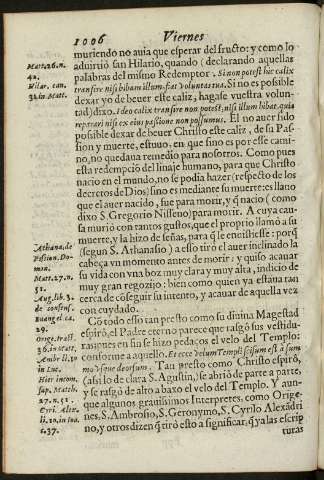 1006 Viernes
muriendo no auia que esperar del fructo: y como lo
aduirtió san Hilario, quando (declarando aquellas
palabras del mismo Redemptor. Si non potest hic calix
transire nisi bibam illum, fiat voluntas tua. Si no es possible
dexar yo de beuer este caliz, hagase vuestra volun-
tad) dixo. Ideo calix transire non potest, nisi illum bibat, quia
reparari nisi ex eius passione non possumus. El no auer sido
possible dexar de beuer Christo este caliz, de su Pas-
sion y muerte, estuuo, en que sino es por esse cami-
no, no quedaua remedio para nosotros. Como pues
esta redempciõ del linaje humano, para que Christo
nacio en el mundo, no se podia hazer (respecto de los
decretos de Dios) sino es mediante su muerte: es llano
que el auer nacido, fue para morir, y q̃ nacio (como
dixo S. Gregorio Nisseno) para morir. A cuya cau-
sa murio con tantos gustos, que el proprio llamò a su
muerte, y la hizo de señas, para q̃ le enuistiesse: porq̃
(segun S. Athanasio) a esso tirò el auer inclinado la
cabeça vn momento antes de morir: y quiso acauar
su vida con vna boz muy clara y muy alta, indicio de
muy gran regozijo: bien como quien ya estaua tan
cerca de cõseguir su intento, y acauar de aquella vez
con cuydado.
Cõ todo esso tan presto como su diuina Magestad
espirò, el Padre eterno parece que rasgò sus vestidu-
ras, quien sin se hizo pedaços el velo del Templo:
conforme a aquello. Et ecce velum Templi scissum est à sum
mo vsque deorsum. Tan presto como Christo espirò,
(assi lo de clara S. Agustin,) se abrió de parte a parte,
y se rasgò de alto a baxo el velo del Templo. Y aun-
que algunos grauissimos Interpretes, como Orige-
nes, S. Ambrosio, S. Geronymo, S. Cyrilo Alexãdri
no, y otros dizen q̃ tirò esto a significar, q̃ ya las escrip
turas
Matt. 26. n.
42.
Hilar. can.
31. in Matt.
Athana. de
Passion. Do-
min.
Matt. 27. n.
51.
Aug. lib. 3.
de consens.
Euangel. ca.
29.
Orige. tract.
36. in Matt.
Amb. li. 10
in Luc.
Hier in com.
sup. Matth.
27. n. 51.
Cyri. Alex.
li. 12. in Ioa.
c. 37.